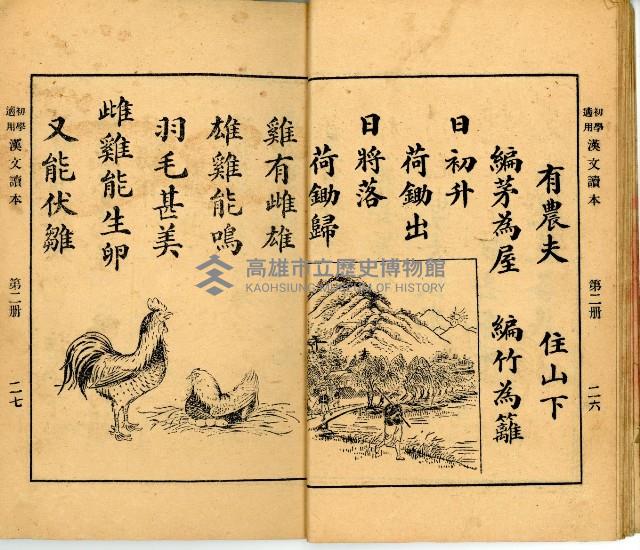 初學適用 漢文讀本 第二册 二六
有農夫 住山下
編茅為屋 編竹為籬
日初升
荷鋤出
日將落
荷鋤歸
雞有雌雄
雄雞能鳴
羽毛甚美
雌雞能生卵
又能伏雛
初學適用 漢文讀本 第二册 二七
高雄市立歷史博物館
KAOHSIUNG MUSEUM OF HISTORY